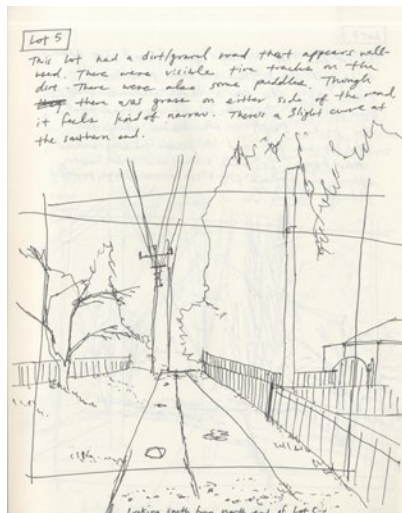 Lot 5
This lot had a dirt/gravel road that appears well-
used. There were visible tire tracks on the
dirt. There were also some puddles. Though
there was grass on either side of the road
it feels kind of narrow. There's a slight curve at
the southern end.
Looking south from north end of Lot